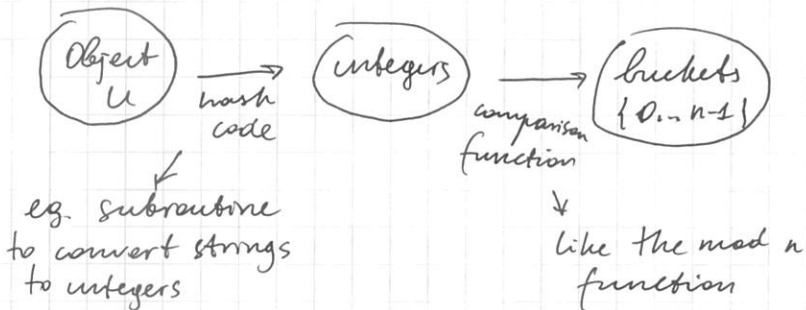 Object
U
hash
code
integers
comparison
function
buckets
{0... n-1}
eg. subroutine
to convert strings
to integers
like the mod n
function